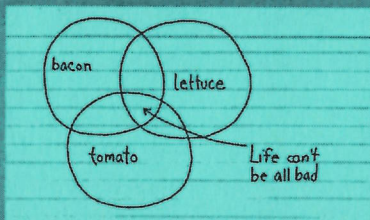 bacon
lettuce
tomato
Life can't
be all bad